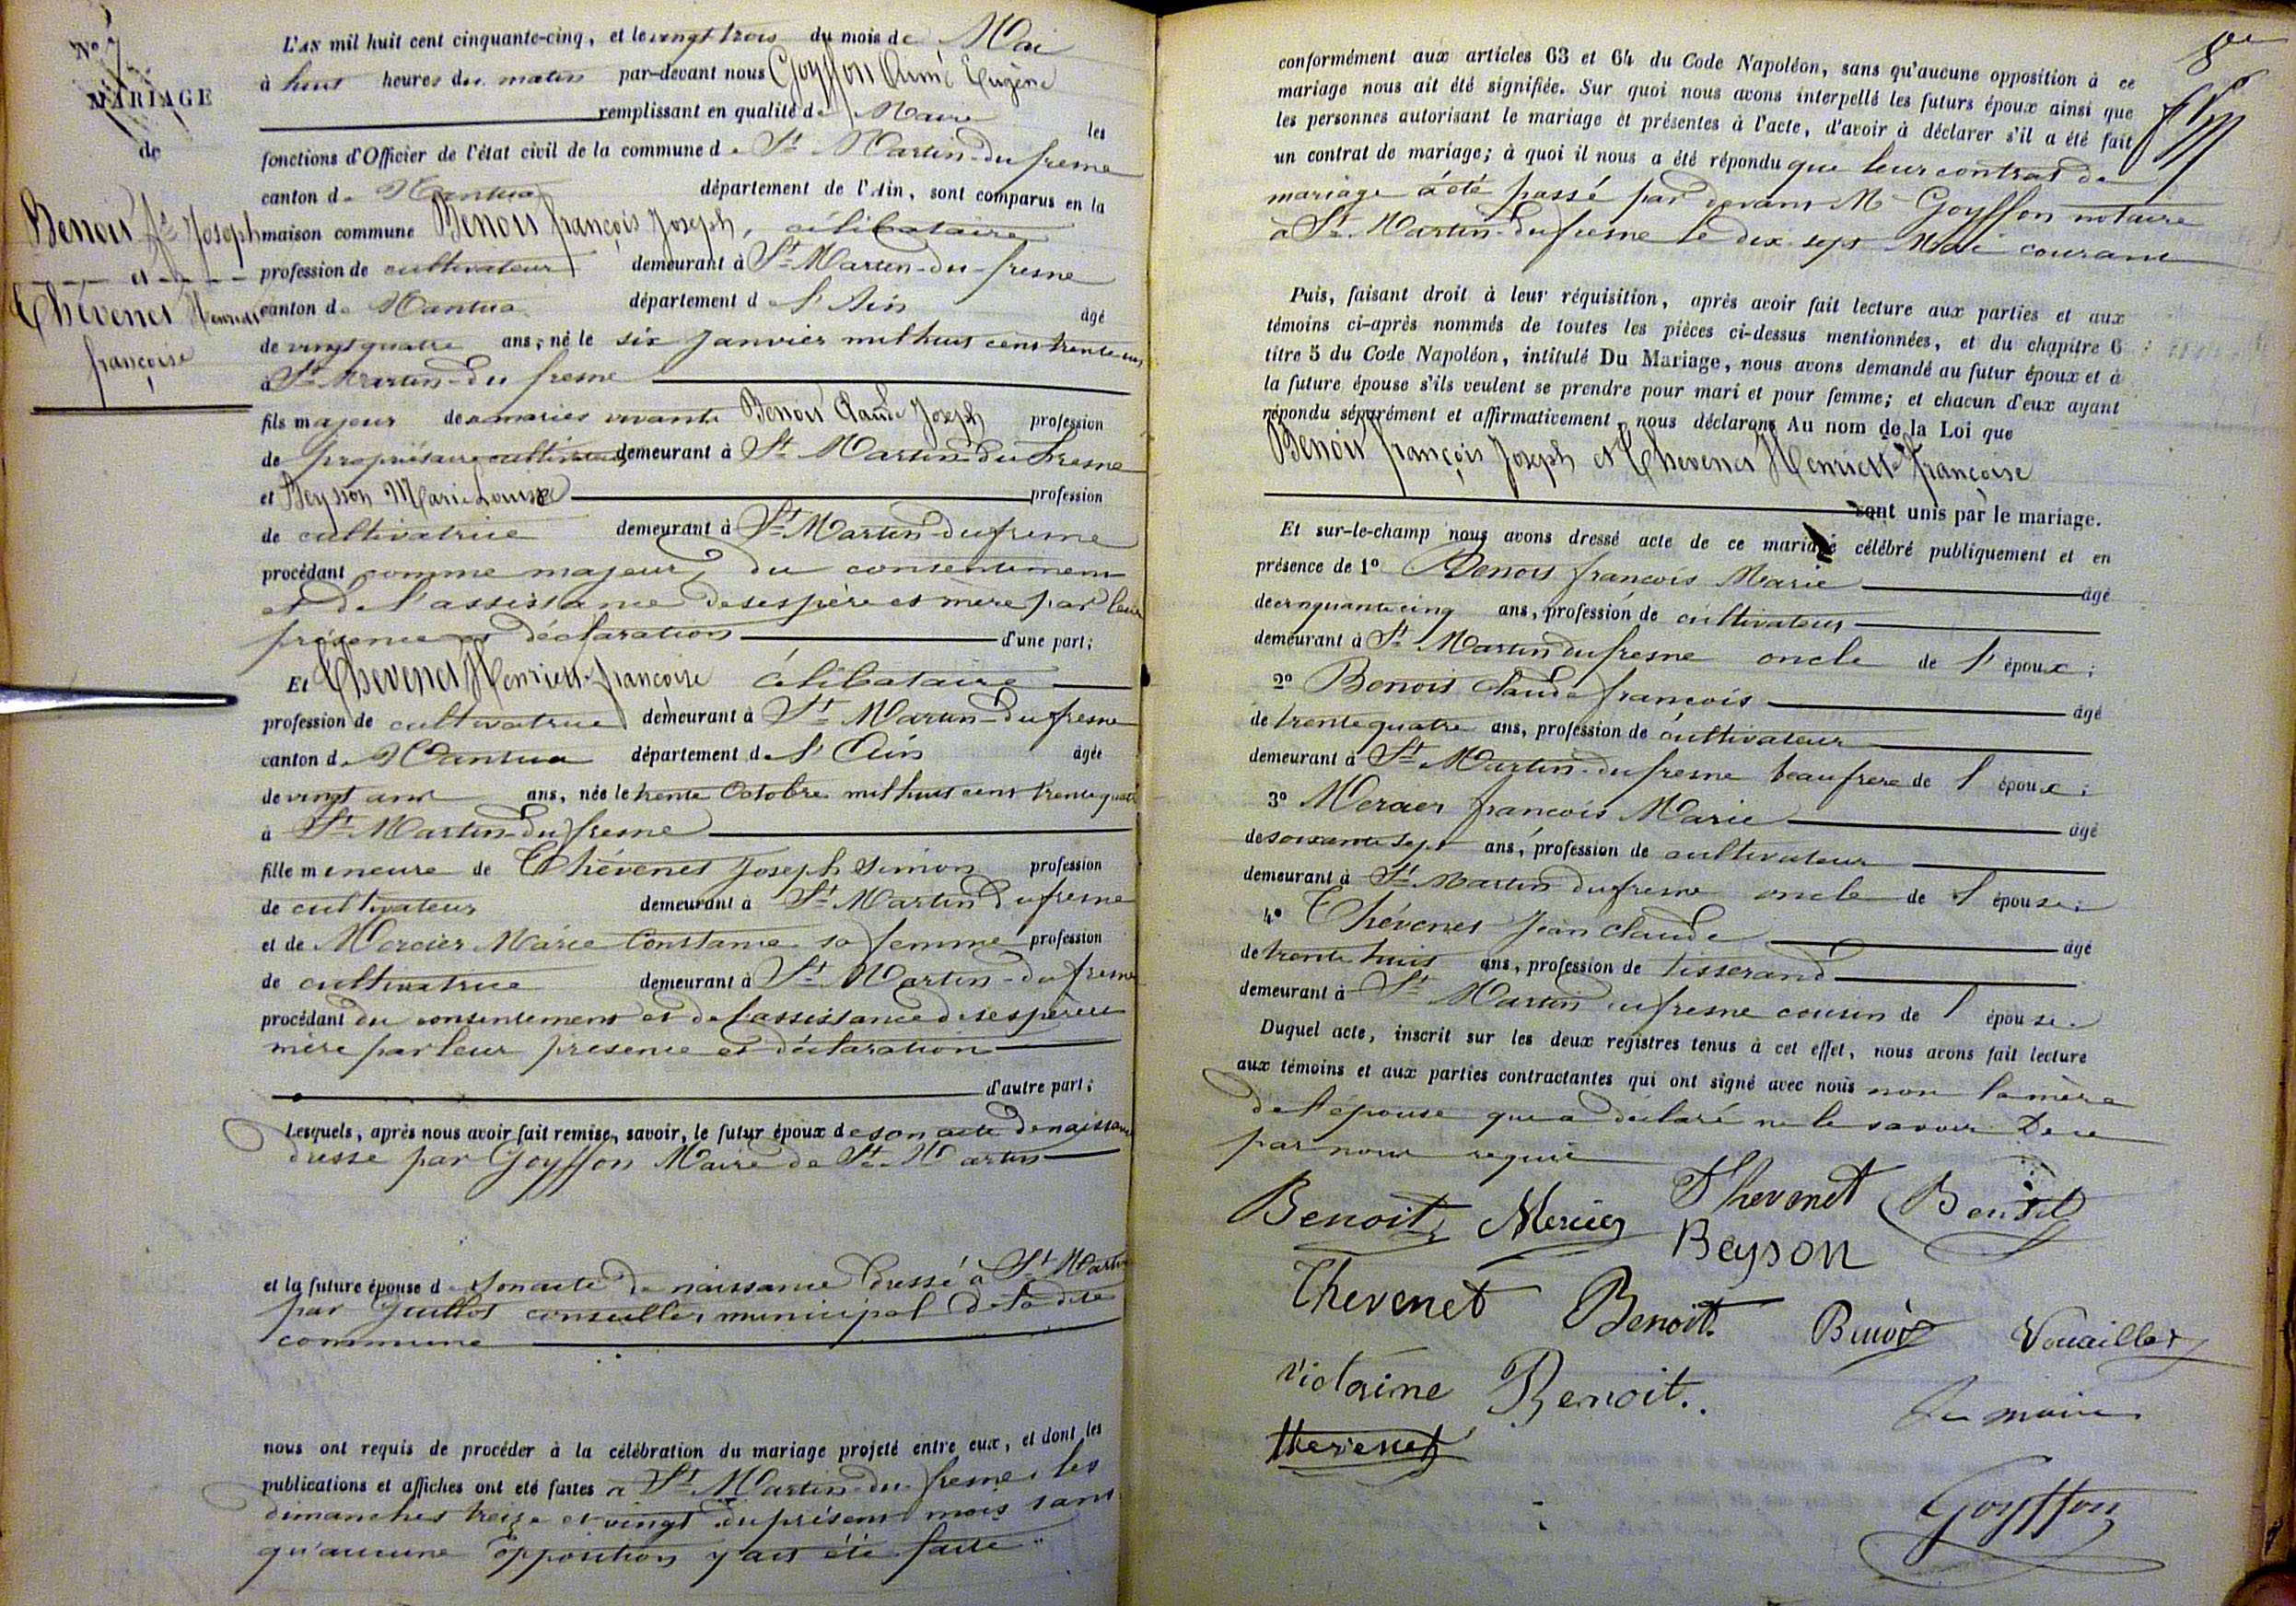 N° 7
MARIAGE
de
Benoit fs Joseph
et
Thévenet Henriette
françoise
L'AN mil huit cent cinquante-cinq, et le vingt trois du mois de Mai
à huit heures du matin par-devant nous Goyffon Aimé Eugène
remplissant en qualité de Maire les
fonctions d'Officier de l'état civil de la commune de St Martin-du fresne
canton de Nantua département de l'Ain, sont comparus en la
maison commune Benoit françois Joseph, célibataire
profession de cultivateur demeurant à St Martin-du-fresne
canton de Nantua département de l'Ain âgé
de vingt quatre ans, né le six Janvier mil huit cent trente un
à St Martin-du fresne
fils majeur de mariés vivants Benoit Claude Joseph profession
de propriétaire cultivateur demeurant à St Martin-du Fresne
et Beyson Marie Louise profession
de cultivatrice demeurant à St Martin-du fresne
procédant comme majeur, du consentement
et de l'assistance de ses père et mère par leur
présence et déclaration d'une part;
Et Thevenet Henriette françoise célibataire
profession de cultivatrice demeurant à St Martin-du fresne
canton de Nantua département de l'Ain âgée
de vingt ans ans, née le trente Octobre mil huit cent trente quatre
à St Martin-du fresne
fille mineure de Thévenet Joseph Simon profession
de cultivateur demeurant à St Martin du fresne
et de Mercier Marie Constance sa femme profession
de cultivatrice demeurant à St Martin-du fresne
procédant du consentement et de l'assistance de ses père et
mère par leur présence et déclaration
d'autre part;
Lesquels, après nous avoir fait remise, savoir, le futur époux de son acte de naissance
dressé par Goyffon Maire de St Martin
et la future épouse de son acte de naissance dressé à St Martin
par Guillot conseiller municipal de la dite
commune
nous ont requis de procéder à la célébration du mariage projeté entre eux, et dont les
publications et affiches ont été faites à St Martin-du-fresne les
dimanches treize et vingt du présent mois sans
qu'aucune opposition y ait été faite
conformément aux articles 63 et 64 du Code Napoléon, sans qu'aucune opposition à ce
mariage nous ait été signifiée. Sur quoi nous avons interpellé les futurs époux ainsi que
les personnes autorisant le mariage et présentes à l'acte, d'avoir à déclarer s'il a été fait
un contrat de mariage; à quoi il nous a été répondu que leur contrat de
mariage a été passé par devant Me Goyffon notaire
à St Martin-du fresne le dix sept Mai courant
Puis, faisant droit à leur réquisition, après avoir fait lecture aux parties et aux
témoins ci-après nommés de toutes les pièces ci-dessus mentionnées, et du chapitre 6
titre 5 du Code Napoléon, intitulé Du Mariage, nous avons demandé au futur époux et à
la future épouse s'ils veulent se prendre pour mari et pour femme; et chacun d'eux ayant
répondu séparément et affirmativement, nous déclarons Au nom de la Loi que
Benoit françois Joseph et Thevenet Henriette françoise
sont unis par le mariage.
Et sur-le-champ nous avons dressé acte de ce mariage célébré publiquement et en
présence de 1° Benoit françois Marie âgé
de cinquante cinq ans, profession de cultivateur
demeurant à St Martin du fresne oncle de l'époux;
2° Benoit Claude françois âgé
de trente quatre ans, profession de cultivateur
demeurant à St Martin-du fresne beaufrere de l'époux;
3° Mercier françois Marie âgé
de soixante sept ans, profession de cultivateur
demeurant à St Martin du fresne oncle de l'épouse;
4° Thévenet Jean Claude âgé
de trente huit ans, profession de tisserand
demeurant à St Martin du fresne cousin de l'épouse.
Duquel acte, inscrit sur les deux registres tenus à cet effet, nous avons fait lecture
aux témoins et aux parties contractantes qui ont signé avec nous non la mère
de l'épouse qui a déclaré ne le savoir De ce
par nous requise
Benoit Mercier Thevenet Benoit
Beyson
Thevenet Benoit Benoit Vuaillet
victorine Benoit.
thevenet
Le maire
Goyffon